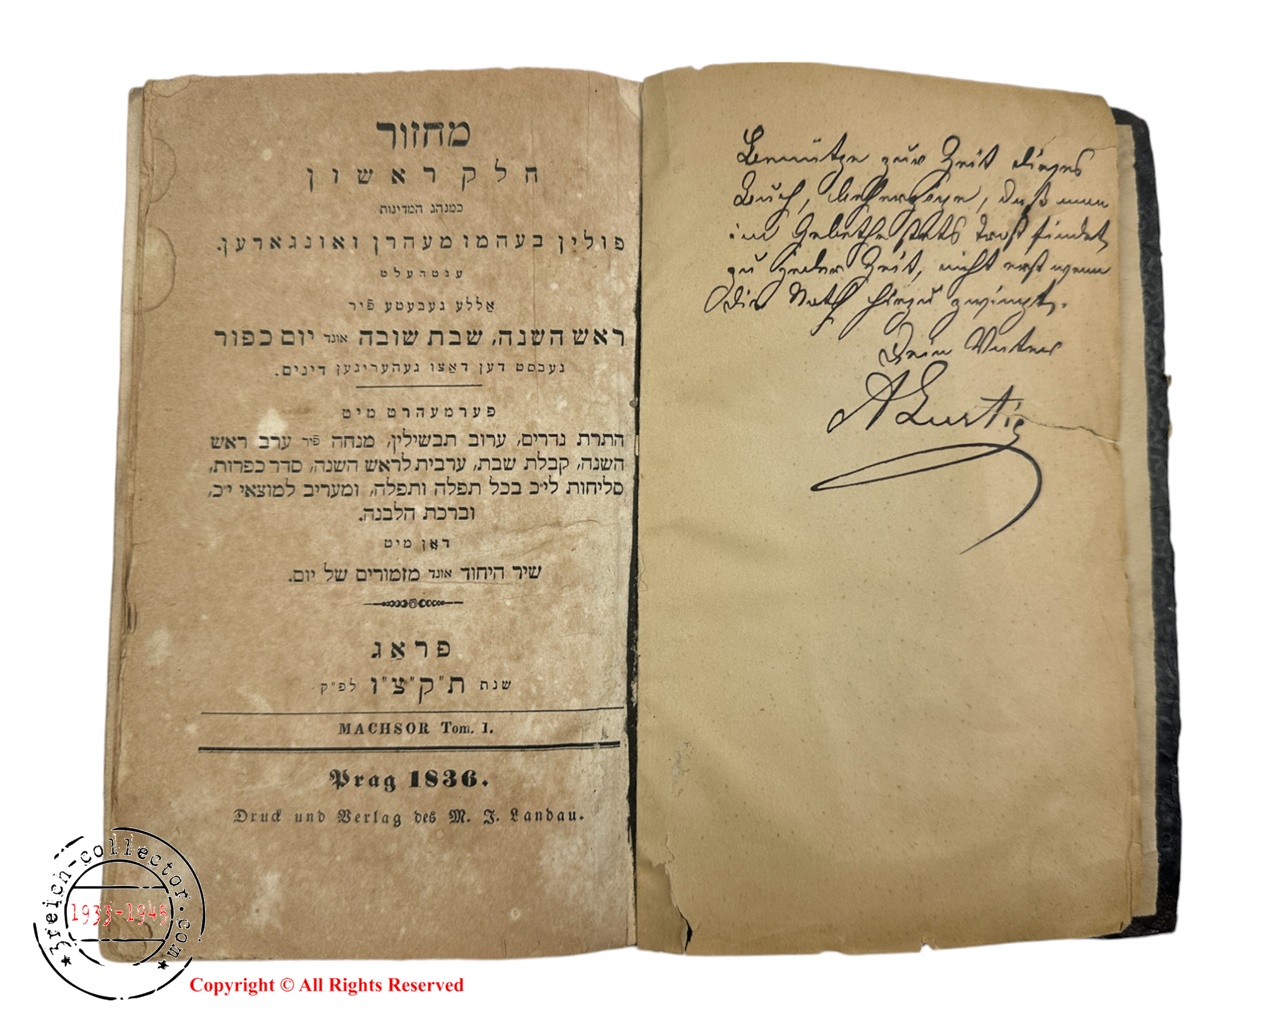 מחזור
חלק ראשון
כמנהג המדינות
פולין בעהמו מעהרן ואונגארען.
ענטהעלט
אַללע געבעטע פֿיר
ראש השנה, שבת שובה אונד יום כפור
נעבסט דען דאַצו געהעריגען דינים.
פערמעהרט מיט
התרת נדרים, ערוב תבשילין, מנחה פֿיר ערב ראש
השנה, קבלת שבת, ערבית לראש השנה, סדר כפרות,
סליחות לי״כ בכל תפלה ותפלה, ומעריב למוצאי י״כ,
וברכת הלבנה.
דאַן מיט
שיר היחוד אונד מזמורים של יום.
פראַג
שנת ת"ק"צ"ו לפ"ק
MACHSOR Tom. I.
Prag 1836.
Druck und Verlag des M. J. Landau.
Benütze zur Zeit dieses
Buch, beherzige, daß man
im Gebethe stets Trost findet
zu jeder Zeit, nicht erst wenn
die Noth hiezu zwingt.
Dein Vater
3reich-collector.com
1933-1945
Copyright © All Rights Reserved